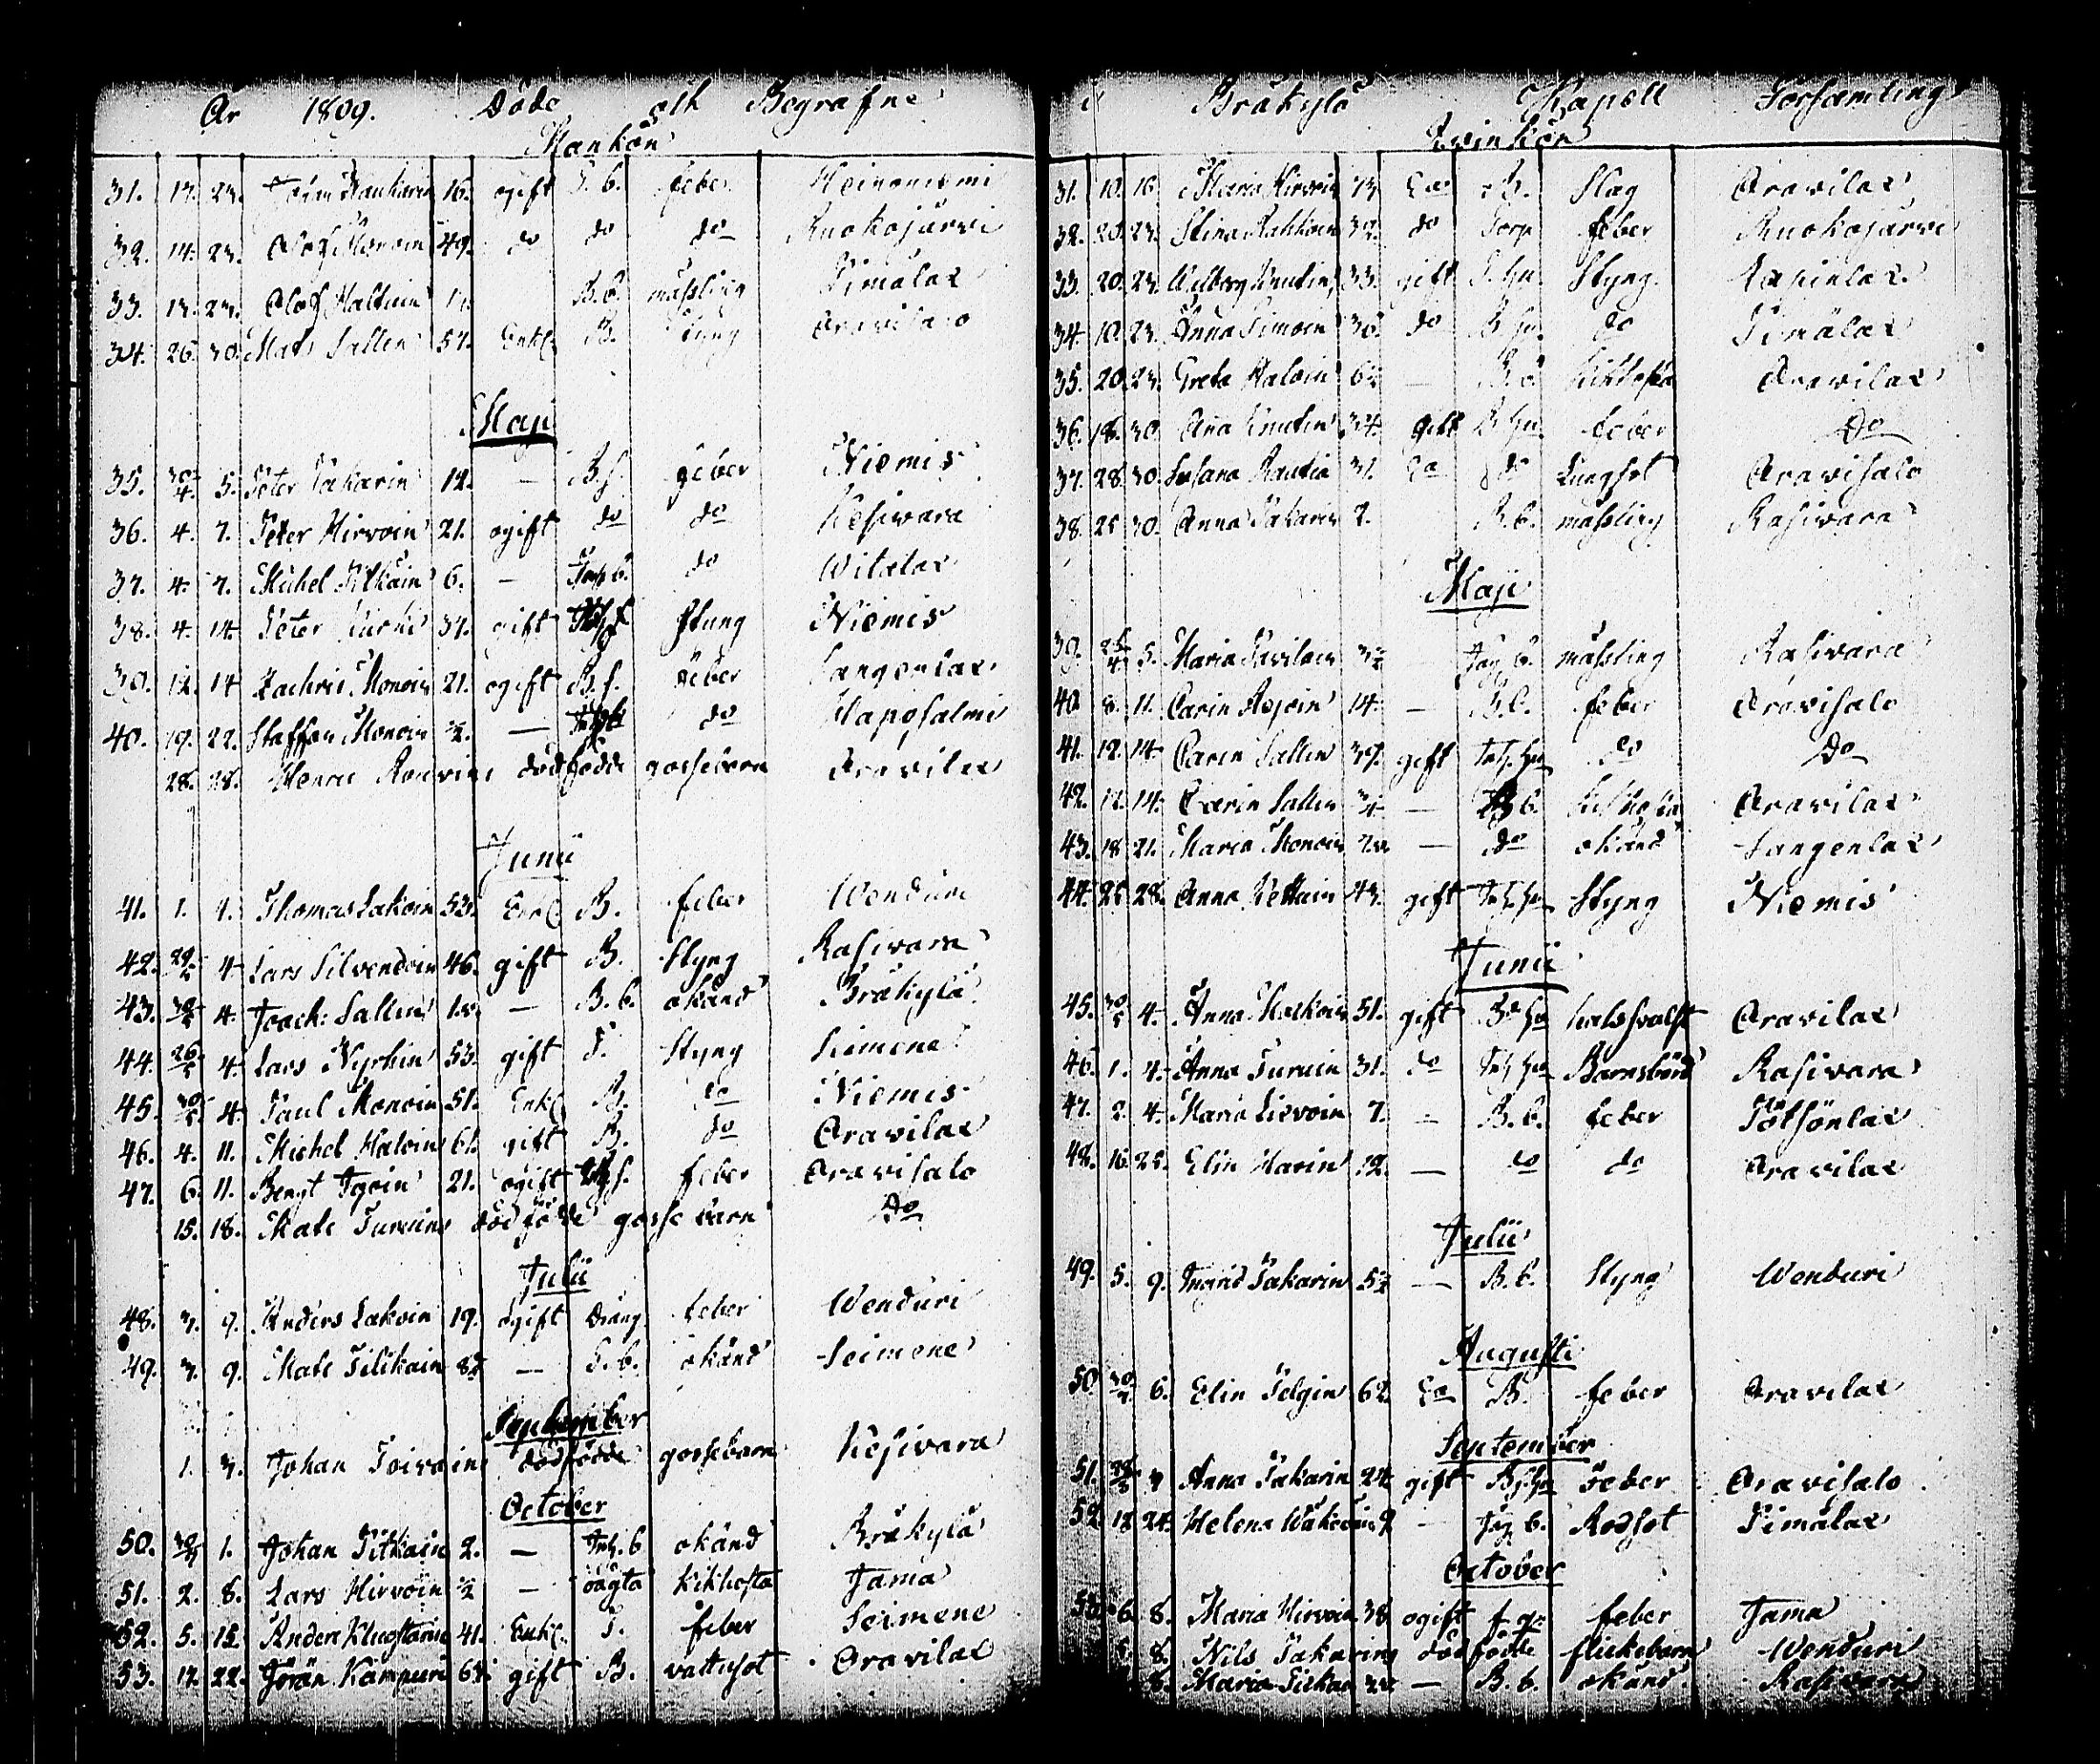 År 1809. Döde och Begrafne
Mankön
31. 17. 23. Kaukain 16. ogift T. b. feber Heinoniemi
32. 14. 23. Olof Monoin 49. do do do Ruokojärvi
33. 17. 23. Olof Haltuin B. b. mässling Pimälax
34. 26. 30. Mats Sallin 57. Enkl. B. Styng Oravisalo
Maji
35. 30/4 5. Peter Pakarin 12. — B. s. feber Niemis
36. 4. 7. Peter Hirvoin 21. ogift do do Kesivara
37. 4. 7. Michel Pitkäin 6. — Torp b. do Witalax
38. 4. 14. Peter Kurki 37. gift Styng Niemis
39. 12. 14 Zachris Monoin 21. ogift B. s. feber Sangenlax
40. 19. 22. Staffan Monoin 1/2. — do Haposalmi
28. 28. Henric dödfödde gossebarn Oravilax
Junii
41. 1. 4. Thomas Lakoin 53. Enkl. B. feber Wenduri
42. 29/5 4. Lars Silvendoin 46. gift B. Styng Rasivara
43. 30/5 4. Joach: Sallin 1. v. — B. b. okänd Bräkylä
44. 26/5 4. Lars Nyrhin 53. gift T. Styng Seimene
45. 30/5 4. Paul Monoin 51. Enkl. B. do Niemis
46. 4. 11. Michel Haloin 61. gift B. do Oravilax
47. 6. 11. Bengt Tgoin 21. ogift feber Oravisalo
15. 18. Mats Turuins dödfödde gosse barn Do
Julii
48. 3. 9. Anders Lakoin 19. ogift dräng feber Wenduri
49. 3. 9. Mats Pilikain — T. b. okänd Seimene
September
1. 3. Johan Toivains dödfödde gossebarn Kesivara
October
50. 30/9 1. Johan Pitkäin 2. — Inh. b okänd Bräkylä
51. 2. 8. Lars Hirvoin 1/2 — oägta kikhosta Jama
52. 5. 15. Anders 41. Enkl. T. feber Seimene
53. 17. 22. Jöran Kampuri gift B. vattusot Oravilax
i Bräkylä Kapell Församling
Qvinkön
31. 10. 16. Maria Hirvoin 73 Ea B. Slag Oravilax
32. 20. 23. Stina 32. do Torp feber Ruokojärvi
33. 20. 23. Walborg Knutin 33. gift T. hu Styng Rapinlax
34. 10. 23. Anna Simoin 36. do B hu do Pimälax
35. 20. 23. Greta Haloin — B. b kikhosta Oravilax
36. 18. 30. Ana Knutin 34. gift B hu feber Do
37. 28. 30. Susana Rautia 31. Ea do Lungsot Oravisalo
38. 25 30. Anna Pakarin 2. B. b. mässling Rasivara
Maji
39. 28/4 5. Maria — mässling Rasivara
40 8. 11. Carin Asjoin 14. — B. b. feber Oravisalo
41. 12. 14. Carin Sallin 39. gift Inh. hu do Do
42. 12. 14. Carin Sallin 3/4 — B b. kikhosta Oravilax
43. 18 21. Maria Monoin — do okänd Sangenlax
44. 25 28. Anna Kettuin 43. gift Inh. hu Styng Niemis
Junii
45. 30/5 4. Anna 51. gift Bo hu halssvulst Oravilax
46. 1. 4. Anna Turuin 31. do Inh hu Barnsbörd Rasivara
47. 2. 4. Maria Lievoin 7. — B. b. feber Pötsönlax
48. 16. 25. Elin Harin 12. — do do Oravilax
Julii
49. 5. 9. Ingrid Pakarin — B. b. Styng Wenduri
Augusti
50 30/7 6. Elin Pelgin 62. Ea B. feber Oravilax
September
51. 28/8 3 Anna Pakarin 24. gift B. hu Feber Oravisalo
52 18 24. Helena — b. Rödsot Pimälax
October
53 6. 8. Maria Hirvoin 38 ogift feber Jama
5. 8. Nils Pakarins dödfödde flickebarn Wenduri
8. Maria — B. b. okänd Rasivara